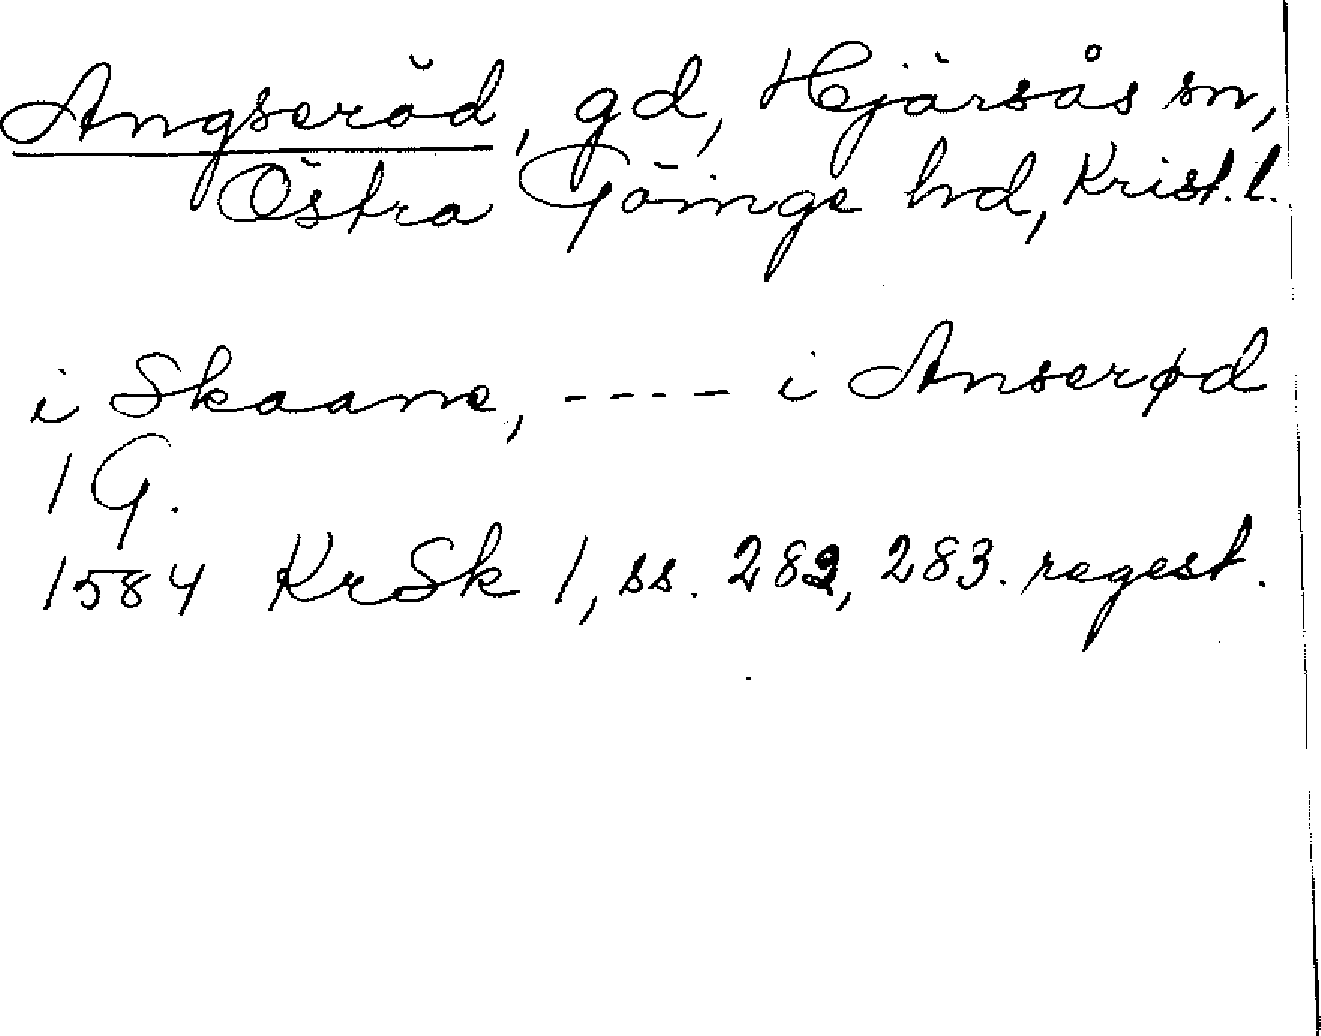 Angseröd, gd, Hjärsås sn,
Östra Göinge hd, Krist.l.
i Skaane, ---- i Anserød
1 G.
1584 KrSk 1, ss. 282, 283. regest.